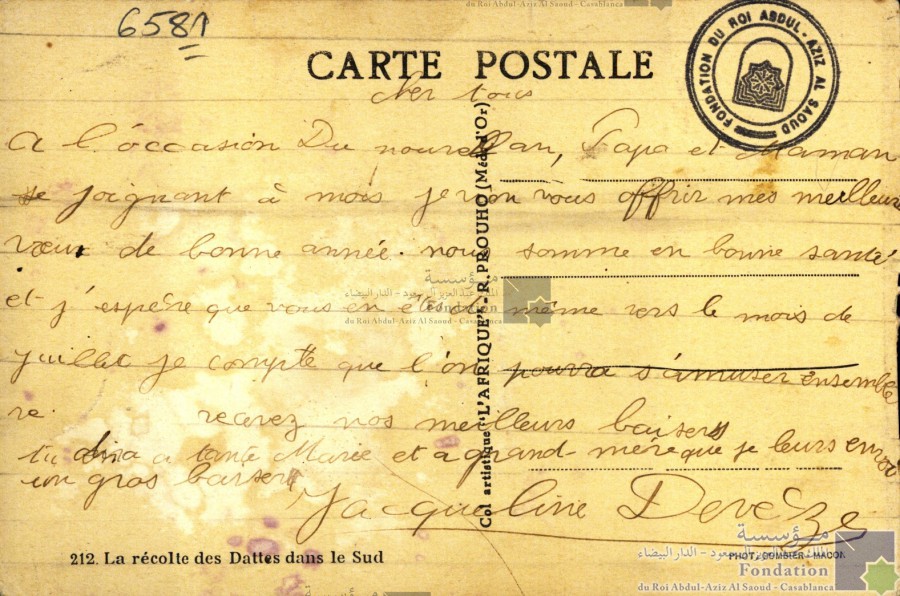 6581
CARTE POSTALE
FONDATION DU ROI ABDUL-AZIZ AL SAOUD
cher tous
a l'occasion Du nouvel an, Papa et Maman
se joignant à mois je von vous offrir mes meilleurs
vœux de bonne année. nous somme en bonne santé
et j'espère que vous en êtes de même vers le mois de
juillet je compte que l'on pourra s'amuser ensemble
re. recevez nos meilleurs baisers
tu dira a tante Marie et a grand-mère que je leurs envoi
un gros baisers
Jacqueline Devèze
Col artistique "L'AFRIQUE" - R. PROUHO (Méd. d'Or)
212. La récolte des Dattes dans le Sud
PHOT. COMBIER - MACON
مؤسسة
الملك عبد العزيز آل سعود - الدار البيضاء
Fondation
du Roi Abdul-Aziz Al Saoud - Casablanca
مؤسسة
الملك عبد العزيز آل سعود - الدار البيضاء
Fondation
du Roi Abdul-Aziz Al Saoud - Casablanca
du Roi Abdul-Aziz Al Saoud - Casablanca